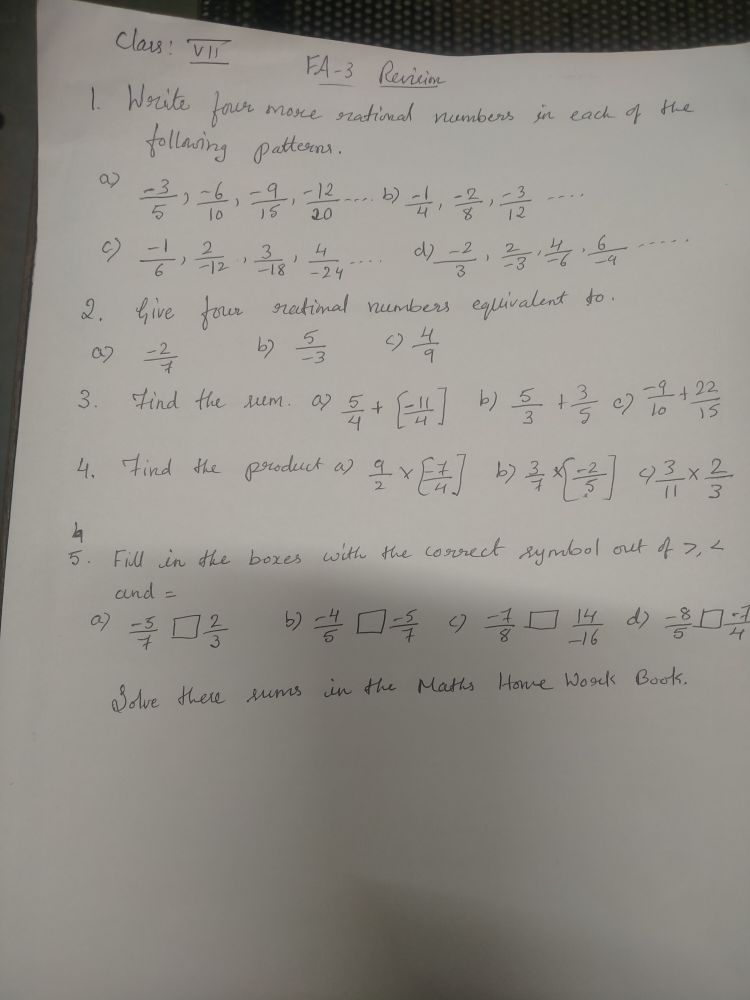 Class: VII
FA-3 Revision
1. Write four more rational numbers in each of the
following patterns.
a) -3/5, -6/10, -9/15, -12/20 .... b) -1/4, -2/8, -3/12 ....
c) -1/6, 2/-12, 3/-18, 4/-24 .... d) -2/3, 2/-3, 4/-6, 6/-9 .....
2. Give four rational numbers equivalent to.
a) -2/7 b) 5/-3 c) 4/9
3. Find the sum. a) 5/4 + [-11/4] b) 5/3 + 3/5 c) -9/10 + 22/15
4. Find the product a) 9/2 × [-7/4] b) 3/7 × [-2/5] c) 3/11 × 2/3
5. Fill in the boxes with the correct symbol out of >, <
and =
a) -5/7 □ 2/3 b) -4/5 □ -5/7 c) -7/8 □ 14/-16 d) -8/5 □ -7/4
Solve these sums in the Maths Home Work Book.